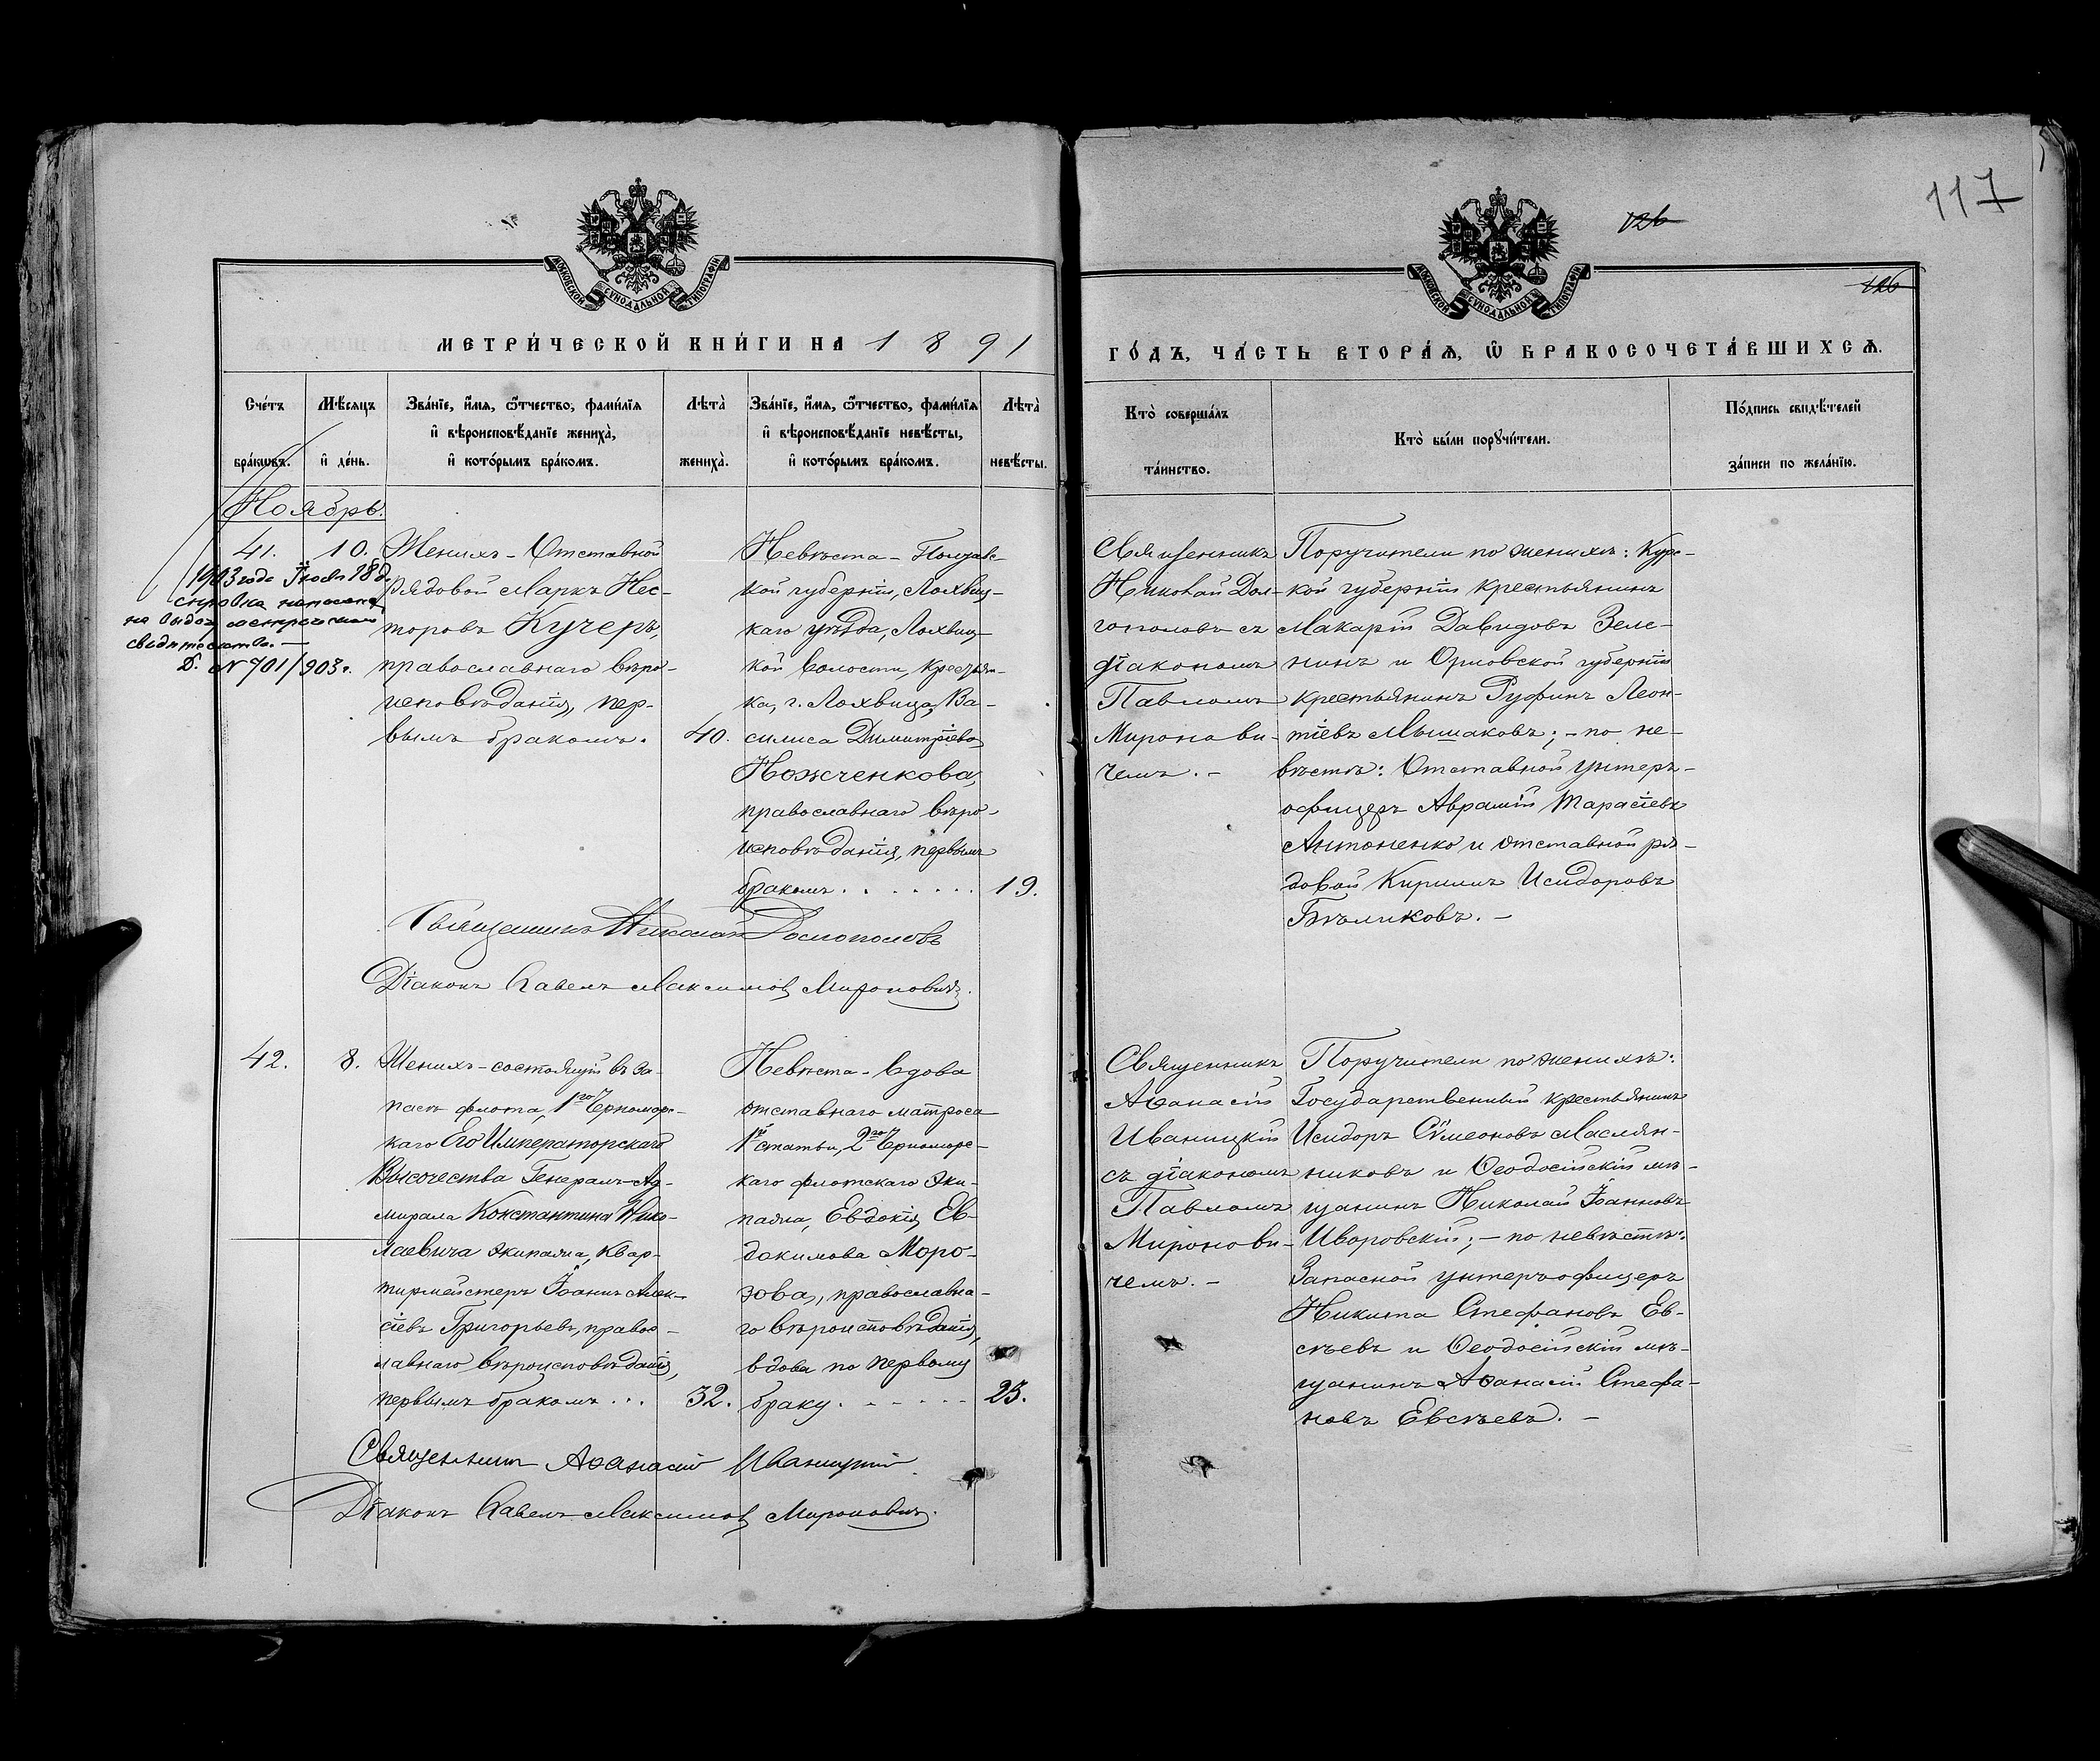 117
126
126
МОСКОВСКОЙ СѴНОДАЛЬНОЙ ТИПОГРАФІИ
МОСКОВСКОЙ СѴНОДАЛЬНОЙ ТИПОГРАФІИ
МЕТРИ́ЧЕСКОЙ КНИ́ГИ НА 1891
ГО́ДЪ, ЧА́СТЬ ВТОРА́Ѧ, Ѿ БРАКОСОЧЕТА́ВШИХСѦ.
Сче́тъ бра́кѡвъ.
Мѣ́сяцъ и҆ де́нь.
Зва́нїе, и҆́мѧ, ѻ҆́тчество, фами́лїѧ
и҆ вѣроисповѣ́данїе жениха̀,
и҆ кото́рымъ бра́комъ.
Лѣта̀ жениха̀.
Зва́нїе, и҆́мѧ, ѻ҆́тчество, фами́лїѧ
и҆ вѣроисповѣ́данїе невѣ́сты,
и҆ кото́рымъ бра́комъ.
Лѣта̀ невѣ́сты.
Кто̀ соверша́лъ
та́инство.
Кто̀ бы́ли порꙋчи́тели.
По́дпись свидѣ́телей
за́писи по жела́нїю.
Ноябрь.
41. 10.
1903 года Іюля 18 д.
справка
на выдач метрическаго
свидѣтельства. —
Д. № 701/903 г.
Женихъ - Отставной
рядовой Маркъ Нес-
торовъ Кучеръ,
православнаго вѣро-
исповѣданія, пер-
вымъ бракомъ. 40.
Невѣста - Полтавс-
кой губерніи, Лохвиц-
каго уѣзда, Лохвиц-
кой волости, крестьян-
ка, г. Лохвица, Ва-
силиса Димитріева
Ножченкова,
православнаго вѣро-
исповѣданія, первымъ
бракомъ. . . . . . . 19.
Священникъ
Николай Дол-
гополовъ съ
діакономъ
Павломъ
Миронови-
чемъ. -
Поручители по женихѣ: Курс-
кой губерніи крестьянинъ
Макарій Давидовъ Зеле-
нинъ и Орловской губерніи
крестьянинъ Руфинъ Леон-
тіевъ Мышаковъ; - по не-
вѣстѣ: Отставной унтеръ-
офицеръ Аврамій Тарасіевъ
Антоненко и отставной ря-
довой Кириллъ Исидоровъ
Бѣликовъ. -
Священникъ Николай Долгополовъ
Діаконъ Павелъ Максимовъ Мироновичъ.
42. 8.
Женихъ - состоящій въ за-
пасѣ флота, 1го Черноморс-
каго Его Императорскаго
Высочества Генералъ-Ад-
мирала Константина Нико-
лаевича экипажа, Квар-
тирмейстеръ Іоаннъ Алек-
сіевъ Григорьевъ, правос-
лавнаго вѣроисповѣданія,
первымъ бракомъ . . . 32.
Невѣста - вдова
отставнаго матроса
1й статьи, 2го Черноморс-
каго флотскаго Эки-
пажа, Евдокія Ев-
докимова Моро-
зова, православна-
го вѣроисповѣданія,
вдова по первому
браку. . . . . . 23.
Священникъ
Аѳанасій
Иваницкій
съ діакономъ
Павломъ
Миронови-
чемъ. -
Поручители по женихѣ:
Государственный крестьянинъ
Исидоръ Сѵмеоновъ Маслян-
никовъ и Ѳеодосійскій мѣ-
щанинъ Николай Іоанновъ
Иворовскій; - по невѣстѣ:
Запасной унтеръ-офицеръ
Никита Стефановъ Ев-
сѣевъ и Ѳеодосійскій мѣ-
щанинъ Аѳанасій Стефа-
новъ Евсѣевъ. -
Священникъ Аѳанасій Иваницкій
Діаконъ Павелъ Максимовъ Мироновичъ.